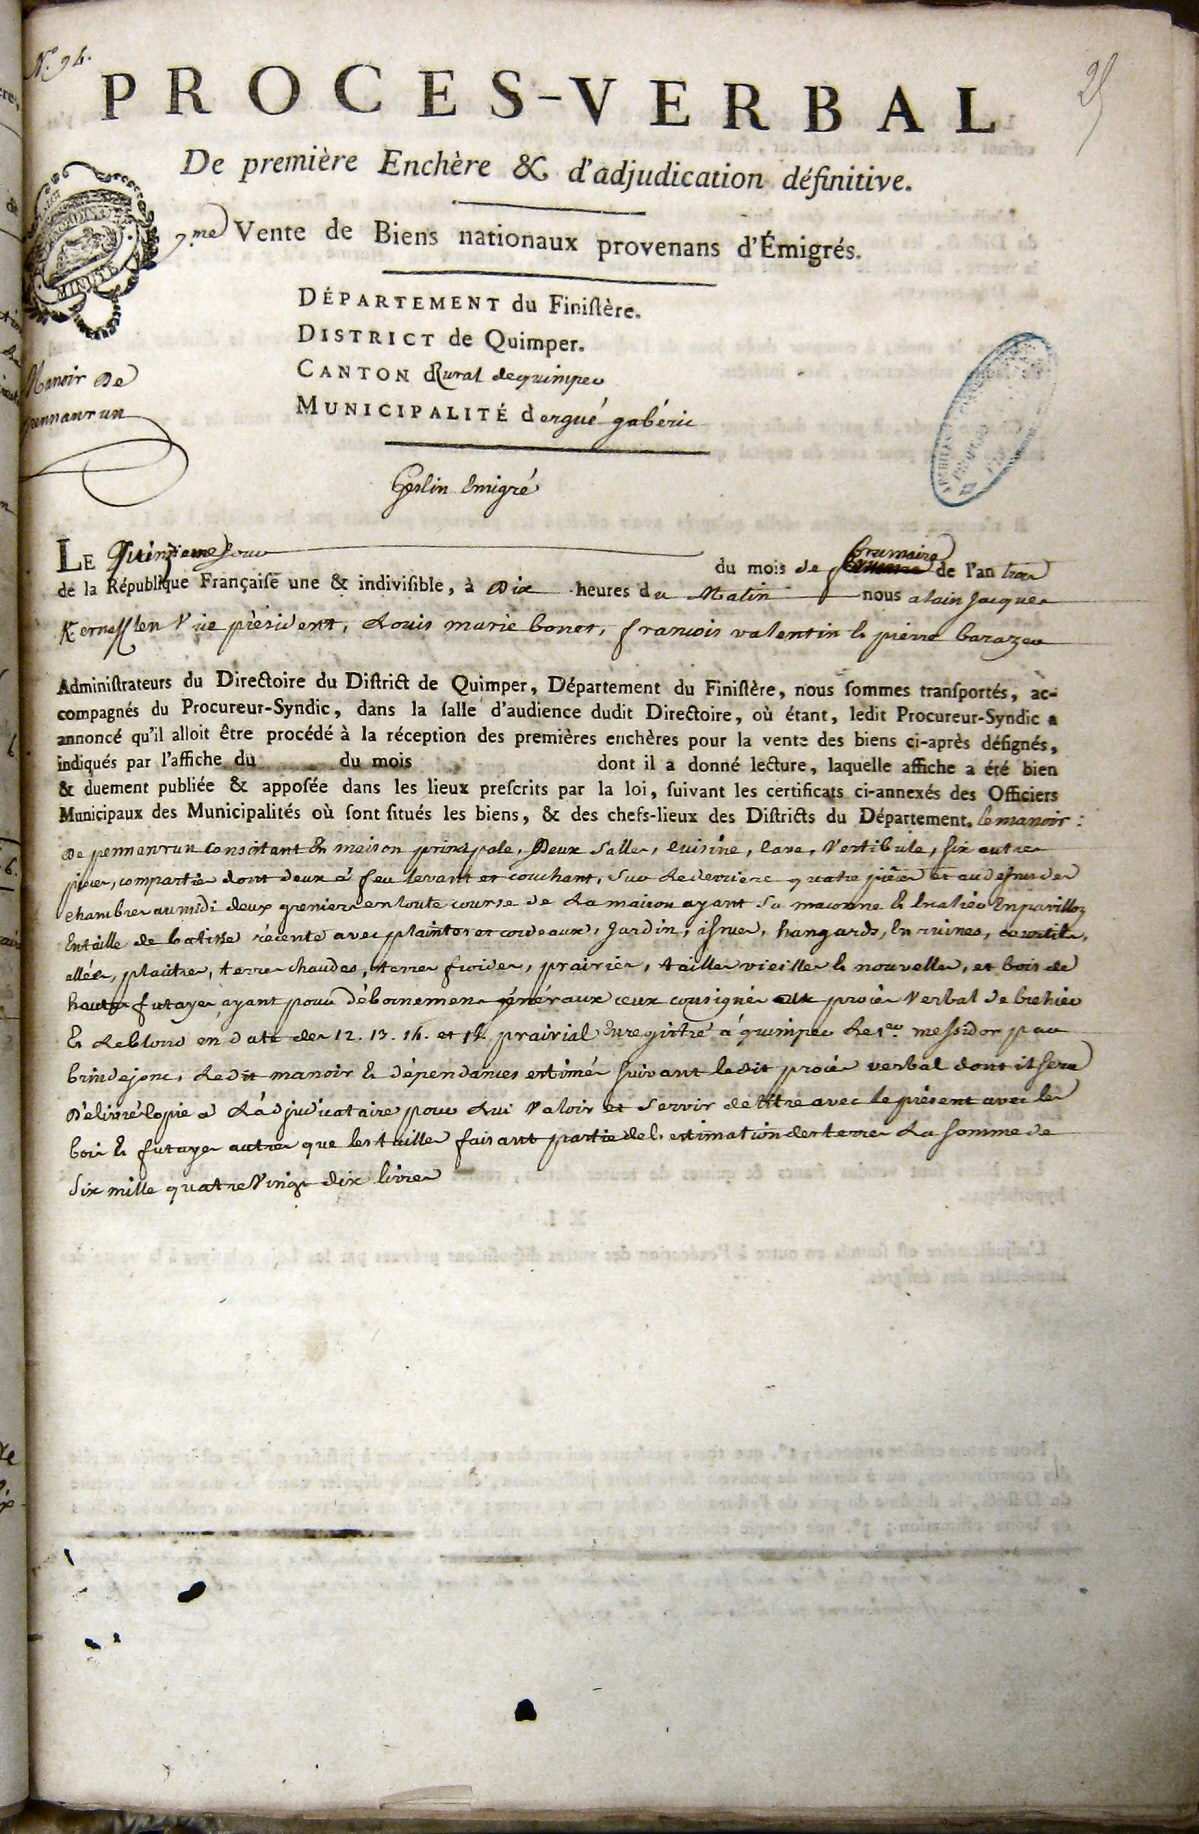 N.° 94.
25
PROCES-VERBAL
De première Enchère & d'adjudication définitive.
7.me Vente de Biens nationaux provenans d'Émigrés.
DÉPARTEMENT du Finistère.
DISTRICT de Quimper.
CANTON Rural de quimper
MUNICIPALITÉ d'ergué gabéric
Manoir De
pennanrun
Geslin émigré
LE Quinzieme Jour du mois de brumaire de l'an trois
de la République Française une & indivisible, à Dix heures du Matin nous alain Jacques
Kernaflen Vice président, Louis marie bonet, francois valentin & pierre barazer
Administrateurs du Directoire du District de Quimper, Département du Finistère, nous sommes transportés, ac-
compagnés du Procureur-Syndic, dans la salle d'audience dudit Directoire, où étant, ledit Procureur-Syndic a
annoncé qu'il alloit être procédé à la réception des premières enchères pour la vente des biens ci-après désignés,
indiqués par l'affiche du du mois dont il a donné lecture, laquelle affiche a été bien
& duement publiée & apposée dans les lieux prescrits par la loi, suivant les certificats ci-annexés des Officiers
Municipaux des Municipalités où sont situés les biens, & des chefs-lieux des Districts du Département. le manoir
De pennanrun Consistant En maison principale, Deux Salles, cuisine, Cave, Vestibule, six autres
pieces, comparties dont deux à feu levant et couchant, Sur Le derriere quatre pièces et au dessus des
chambres au midi deux greniers en toute course de La maison ayant Sa maconne & Escalier En pavillon
En taille de batisse récente avec plaintes et cordeaux, Jardin, issues, hangards, En ruines, courtils,
allées, placitre, terres chaudes, terres froides, prairies, tailles vieilles & nouvelles, et bois de
haute futayes ayant pour débornemens généraux ceux consignés au procès Verbal de brehier
& Leblond en date des 12. 13. 14. et 15. prairial Enregistré à quimper Le 1er. messidor par
brindejonc, Ledit manoir & dépendances estimés suivant ledit procès verbal dont il sera
Délivré Copie à L'adjudicataire pour Lui Valoir et Servir de titre avec le présent avec les
bois & futayes autres que les tailles faisant partie de l'estimation des terres La somme de
six mille quatre Vingt dix livres